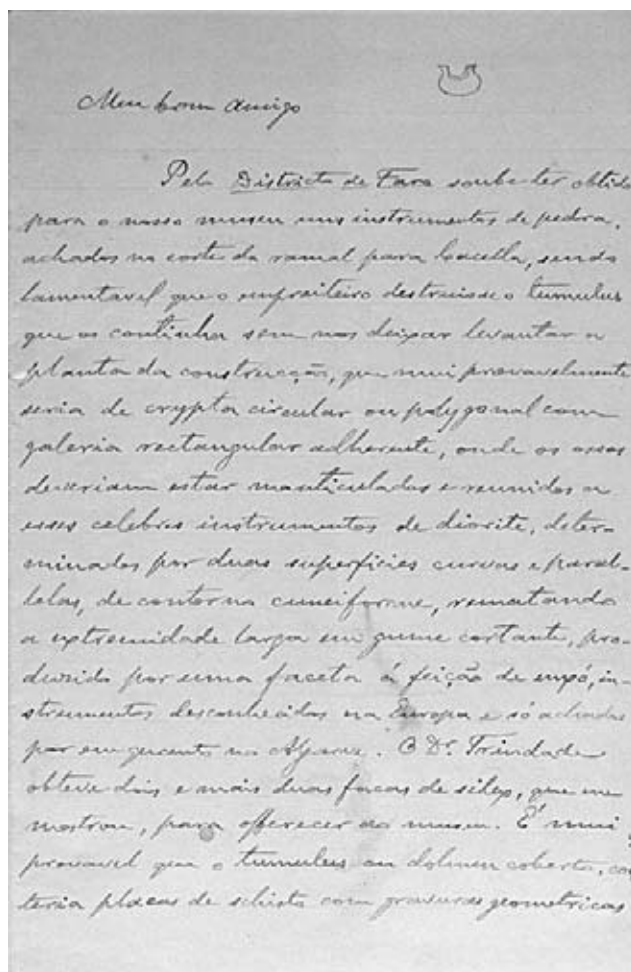 Meu bom amigo
Pelo Districto de Faro soube ter obtido
para o nosso museu uns instrumentos de pedra,
achados no corte do ramal para Cacella, sendo
lamentavel que o empreiteiro destruisse o tumulus
que os continha sem nos deixar levantar a
planta da construcção, que mui provavelmente
seria de crypta circular ou polygonal com
galeria rectangular adherente, onde os ossos
deveriam estar e reunidos a
esses celebres instrumentos de diorite, deter-
minados por duas superficies curvas e paral-
lelas, de contorno cuneiforme, rematando
a extremidade larga em gume cortante, pro-
duzido por uma faceta á feição de enxó, in-
strumentos desconhecidos na Europa e só achados
por em quanto no Algarve. O Dr. Trindade
obteve dois e mais duas facas de silex, que me
mostrou, para offerecer ao museu. É mui
provavel que o tumulus ou dolmen coberto, con
teria placas de schisto com gravuras geometricas